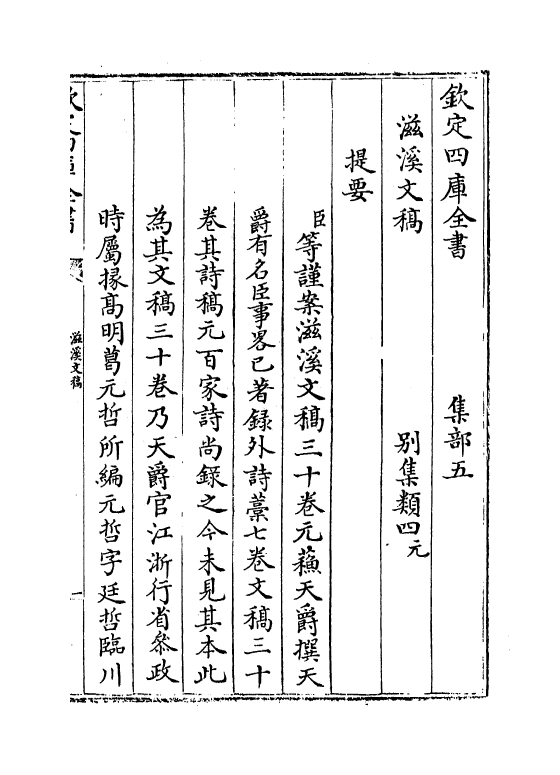 欽定四庫全書 集部五
滋溪文稿 別集類四元
提要
臣等謹案滋溪文稿三十卷元蘓天爵撰天
爵有名臣事畧已著録外詩藁七卷文稿三十
卷其詩稿元百家詩尚録之今未見其本此
為其文稿三十卷乃天爵官江浙行省叅政
時屬掾髙明葛元哲所編元哲字廷哲臨川
欽定四庫全書 滋溪文稿 一